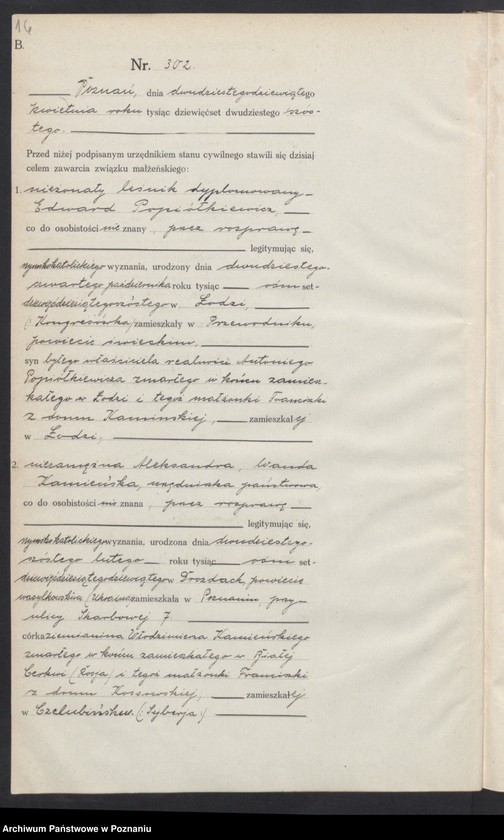 16
B.
Nr. 302.
Poznań, dnia dwudziestegodziewiątego
kwietnia roku tysiąc dziewięćset dwudziestego szós-
tego.
Przed niżej podpisanym urzędnikiem stanu cywilnego stawili się dzisiaj
celem zawarcia związku małżeńskiego:
1. nieżonaty leśnik dyplomowany
Edward Popiółkiewicz,
co do osobistości nie znany, przez rozprawę
legitymując się,
rzymskokatolickiego wyznania, urodzony dnia dwudziestego-
czwartego października roku tysiąc ośm set-
dziewięćdziesiątegoszóstego w Łodzi,
(: Kongresówka) zamieszkały w Przewodniku,
powiecie świeckim,
syn byłego właściciela realności Antoniego
Popiółkiewicza zmarłego w końcu zamiesz-
kałego w Łodzi i tegoż małżonki Franciszki
z domu Kamińskiej, zamieszkałej
w Łodzi,
2. niezamężna Aleksandra, Wanda
Kamieńska, urzędniczka państwowa,
co do osobistości nie znana, przez rozprawę
legitymując się,
rzymskokatolickiego wyznania, urodzona dnia dwudziestego-
szóstego lutego roku tysiąc ośm set-
dziewięćdziesiątegodziewiątego w Drozdach, powiecie
wasylkowskim (Ukraina) zamieszkała w Poznaniu, przy
ulicy Skarbowej 7.
córka ziemianina Włodzimierza Kamieńskiego
zmarłego w końcu zamieszkałego w Białej
Cerkwi (Rosja) i tegoż małżonki Franciszki
z domu Kossowskiej, zamieszkałej
w Czelabińsku. (: Syberja:)
Archiwum Państwowe w Poznaniu